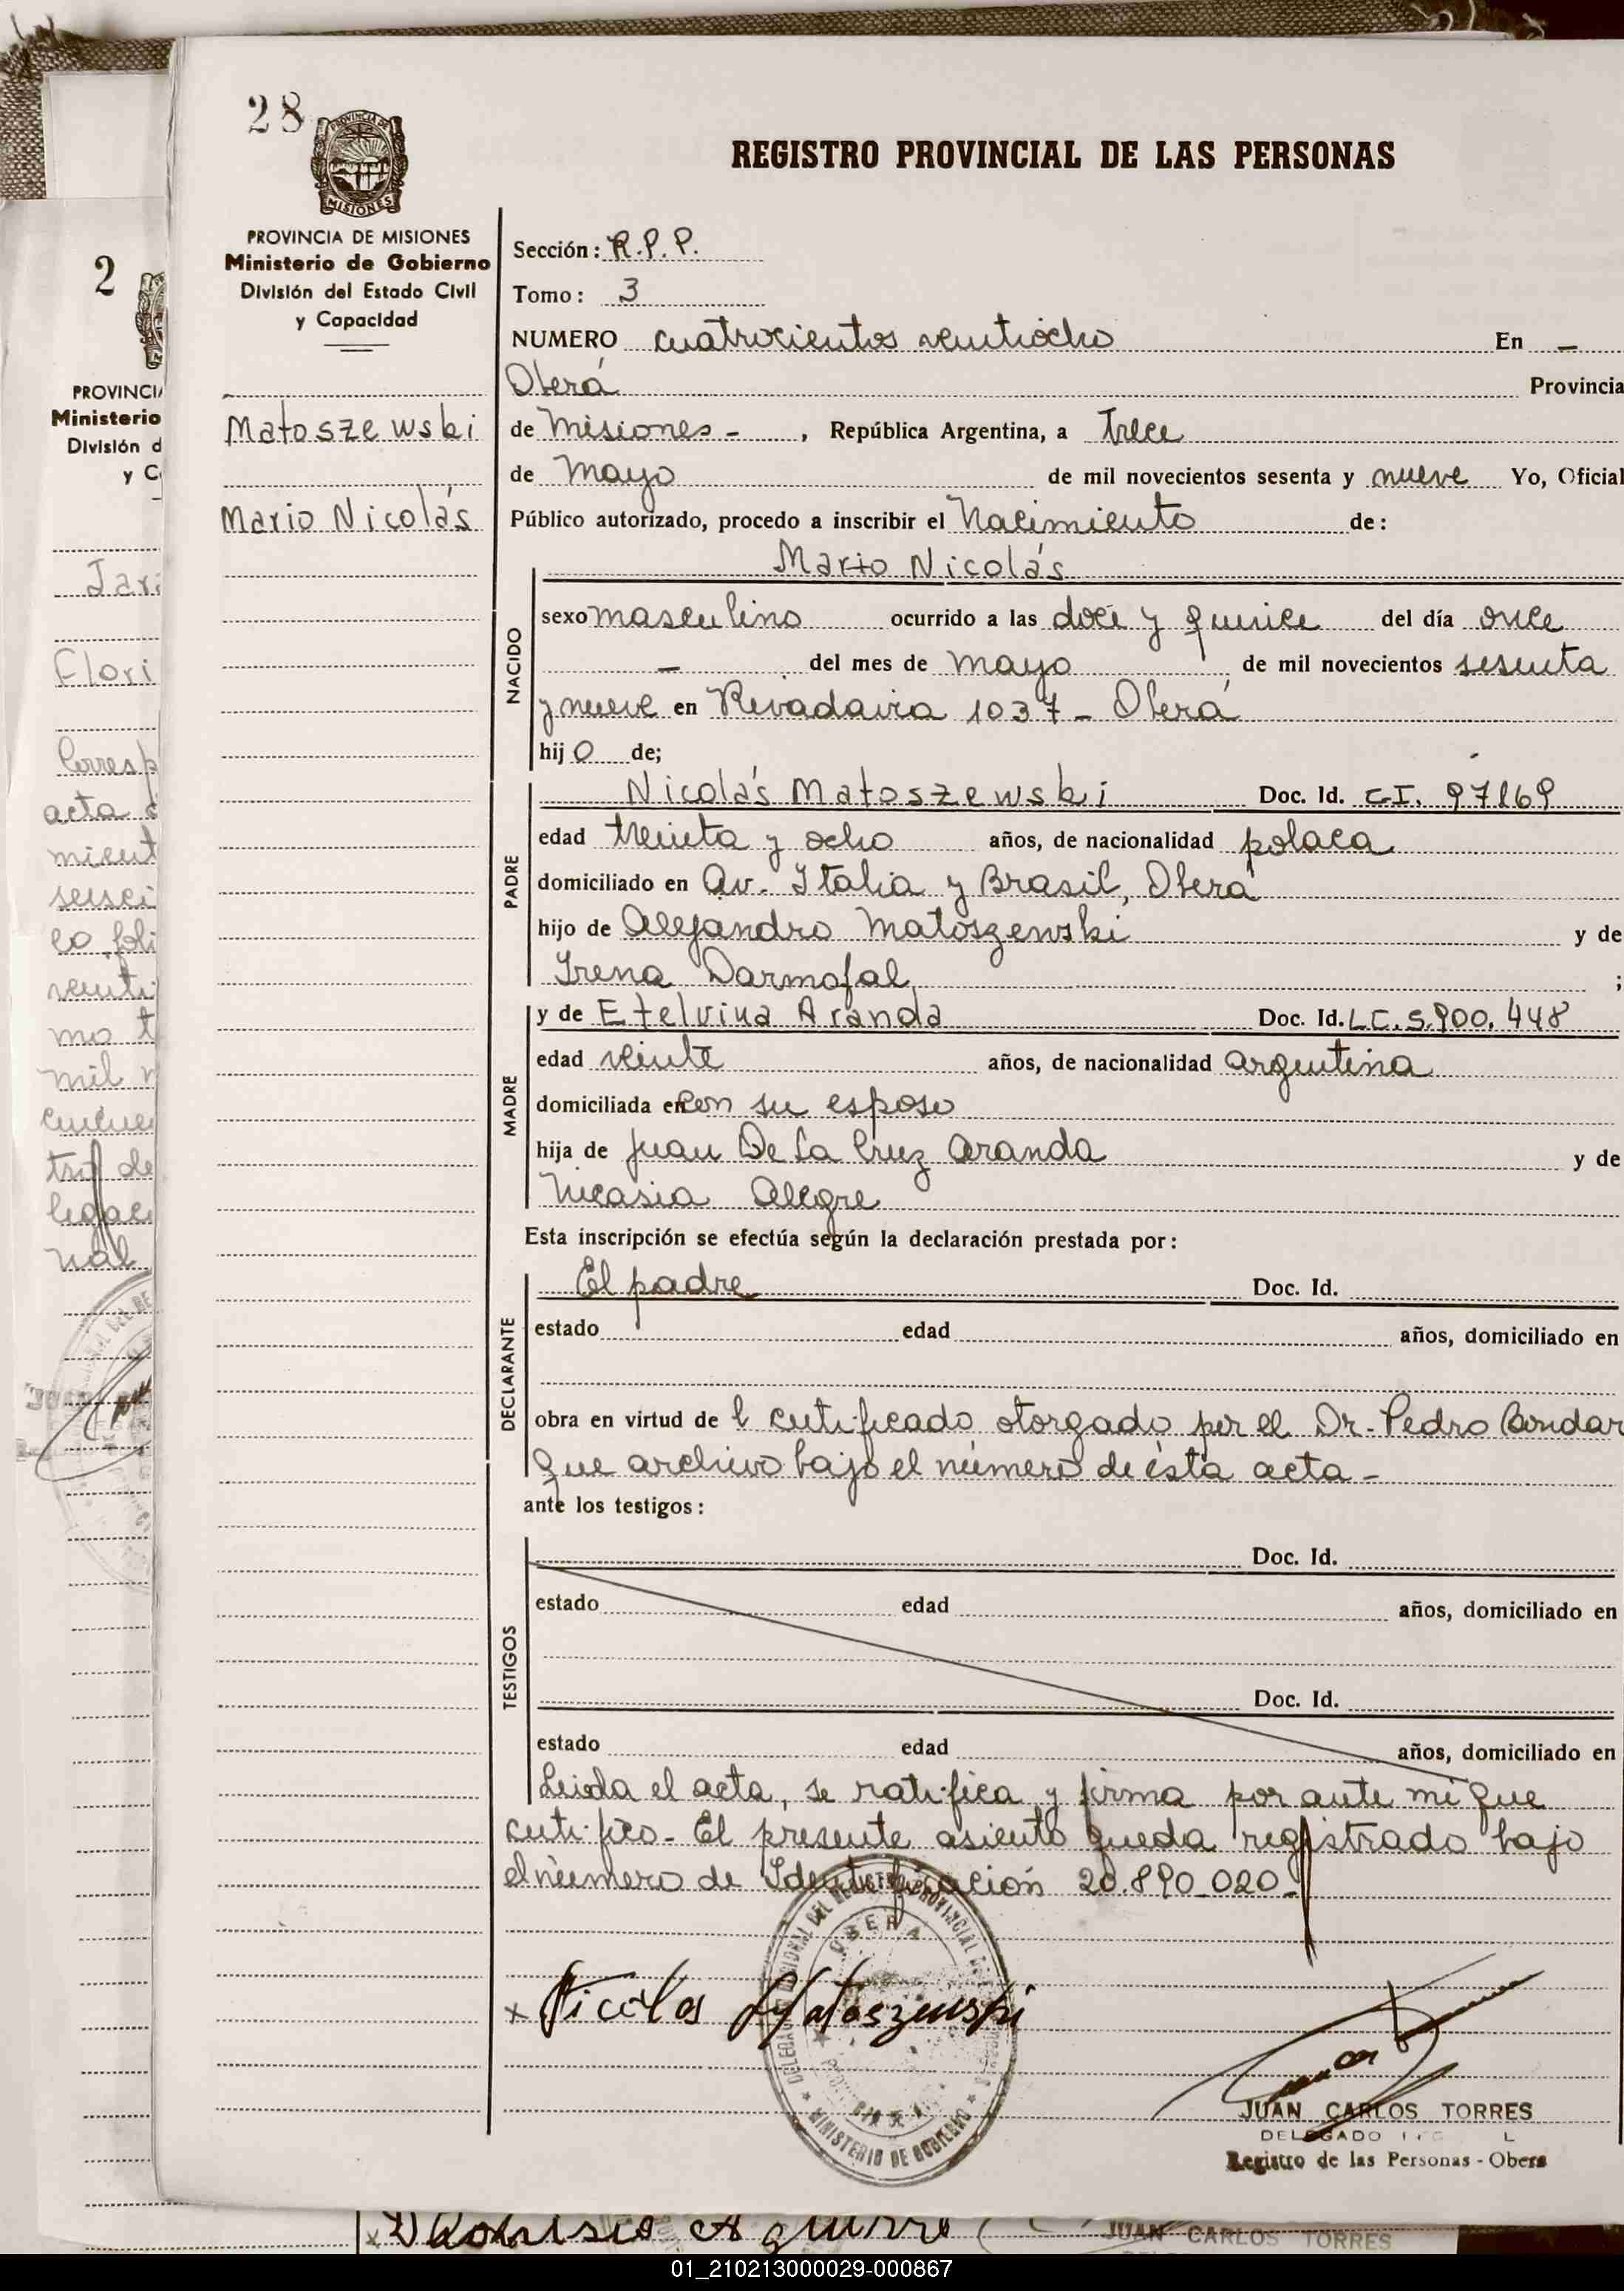 28
PROVINCIA DE
MISIONES
REGISTRO PROVINCIAL DE LAS PERSONAS
PROVINCIA DE MISIONES
Ministerio de Gobierno
División del Estado Civil
y Capacidad
Matoszewski
Mario Nicolás
Sección: R.P.P.
Tomo: 3
NUMERO cuatrocientos veintiocho En –
Oberá Provincia
de Misiones - , República Argentina, a Trece
de Mayo de mil novecientos sesenta y nueve Yo, Oficial
Público autorizado, procedo a inscribir el Nacimiento de:
NACIDO
Mario Nicolás
sexo masculino ocurrido a las doce y quince del día once
– del mes de mayo de mil novecientos sesenta
y nueve en Rivadavia 1037 - Oberá
hij o de;
PADRE
Nicolás Matoszewski Doc. Id. C.I. 97169
edad treinta y ocho años, de nacionalidad polaca
domiciliado en Av. Italia y Brasil, Oberá
hijo de Alejandro Matoszewski y de
Irena Darmofal ;
MADRE
y de Etelvina Aranda Doc. Id. LC. 5.900.448
edad veinte años, de nacionalidad argentina
domiciliada en con su esposo
hija de Juan De La Cruz Aranda y de
Nicasia Alegre
Esta inscripción se efectúa según la declaración prestada por:
DECLARANTE
El padre Doc. Id.
estado edad años, domiciliado en
obra en virtud de l certificado otorgado por el Dr. Pedro Bondar
que archivo bajo el número de ésta acta -
ante los testigos:
TESTIGOS
Doc. Id.
estado edad años, domiciliado en
Doc. Id.
estado edad años, domiciliado en
Leida el acta, se ratifica y firma por ante mi que
certifico - El presente asiento queda registrado bajo
el número de Identificación 20.890.020 -
x Nicolas Matoszewski
OBERA
MINISTERIO DE GOBIERNO
JUAN CARLOS TORRES
DELEGADO
Registro de las Personas - Obera
2
PROVINCIA
Ministerio
División d
y C
Jara
Flori
acta
mient
mo t
mil n
JUAN CARLOS TORRES
01_210213000029-000867